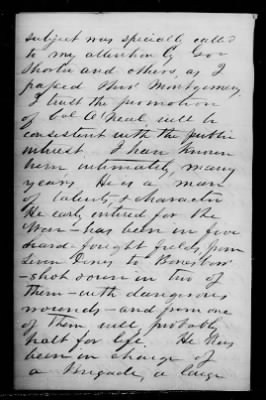 subject was specially called
to my attention by Gov
Shorter and others, as I
passed thro' Montgomery.
I trust the promotion
of Col O'Neal, will be
consistent with the public
interest. I have known
him intimately, many
years. He is a man
of talents, & character
He early entered for the
War - has been in five
hard-fought fields, from
Seven Pines to Boonsboro
- shot down in two of
them - with dangerous
wounds - and from one
of them will probably
halt for life. He has
been in charge of
a Brigade, a large